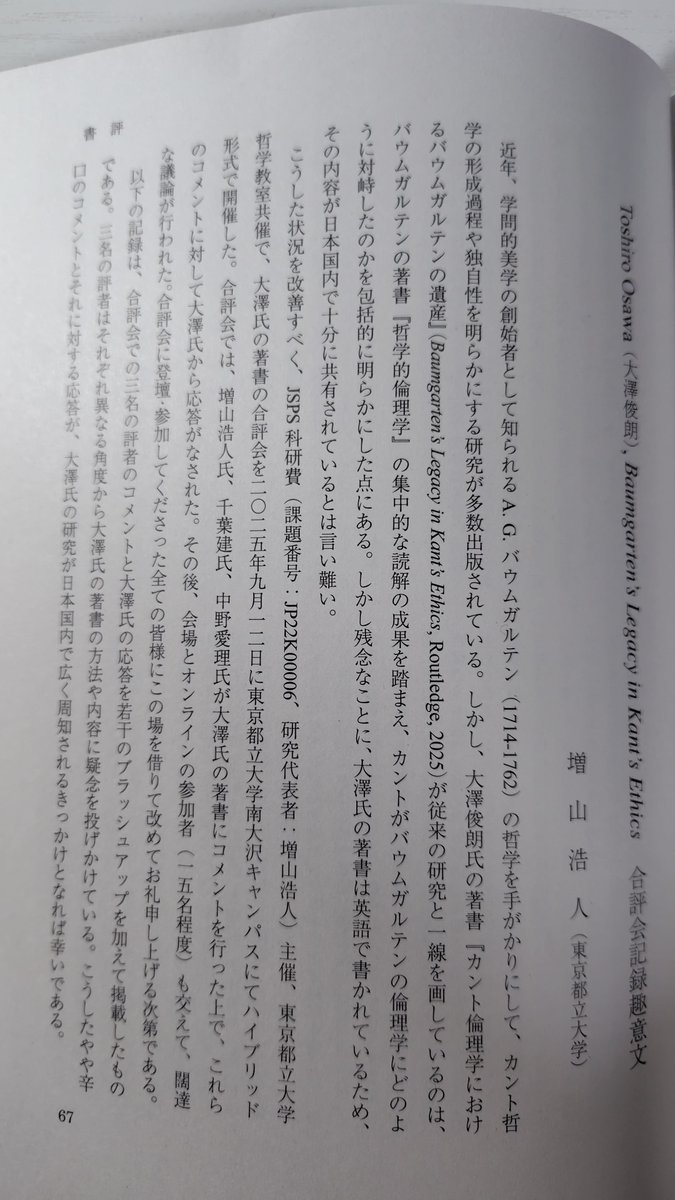 Toshiro Osawa（大澤俊朗）, Baumgarten's Legacy in Kant's Ethics　合評会記録趣意文
増山浩人（東京都立大学）
近年、学問的美学の創始者として知られる A. G. バウムガルテン（1714-1762）の哲学を手がかりにして、カント哲
学の形成過程や独自性を明らかにする研究が多数出版されている。しかし、大澤俊朗氏の著書『カント倫理学におけ
るバウムガルテンの遺産』(Baumgarten's Legacy in Kant's Ethics, Routledge, 2025)が従来の研究と一線を画しているのは、
バウムガルテンの著書『哲学的倫理学』の集中的な読解の成果を踏まえ、カントがバウムガルテンの倫理学にどのよ
うに対峙したのかを包括的に明らかにした点にある。しかし残念なことに、大澤氏の著書は英語で書かれているため、
その内容が日本国内で十分に共有されているとは言い難い。
こうした状況を改善すべく、JSPS 科研費（課題番号：JP22K00006、研究代表者：増山浩人）主催、東京都立大学
哲学教室共催で、大澤氏の著書の合評会を二〇二五年九月一二日に東京都立大学南大沢キャンパスにてハイブリッド
形式で開催した。合評会では、増山浩人氏、千葉建氏、中野愛理氏が大澤氏の著書にコメントを行った上で、これら
のコメントに対して大澤氏から応答がなされた。その後、会場とオンラインの参加者（一五名程度）も交えて、闊達
な議論が行われた。合評会に登壇・参加してくださった全ての皆様にこの場を借りて改めてお礼申し上げる次第である。
以下の記録は、合評会での三名の評者のコメントと大澤氏の応答を若干のブラッシュアップを加えて掲載したもの
である。三名の評者はそれぞれ異なる角度から大澤氏の著書の方法や内容に疑念を投げかけている。こうしたやや辛
口のコメントとそれに対する応答が、大澤氏の研究が日本国内で広く周知されるきっかけとなれば幸いである。
書　評
67